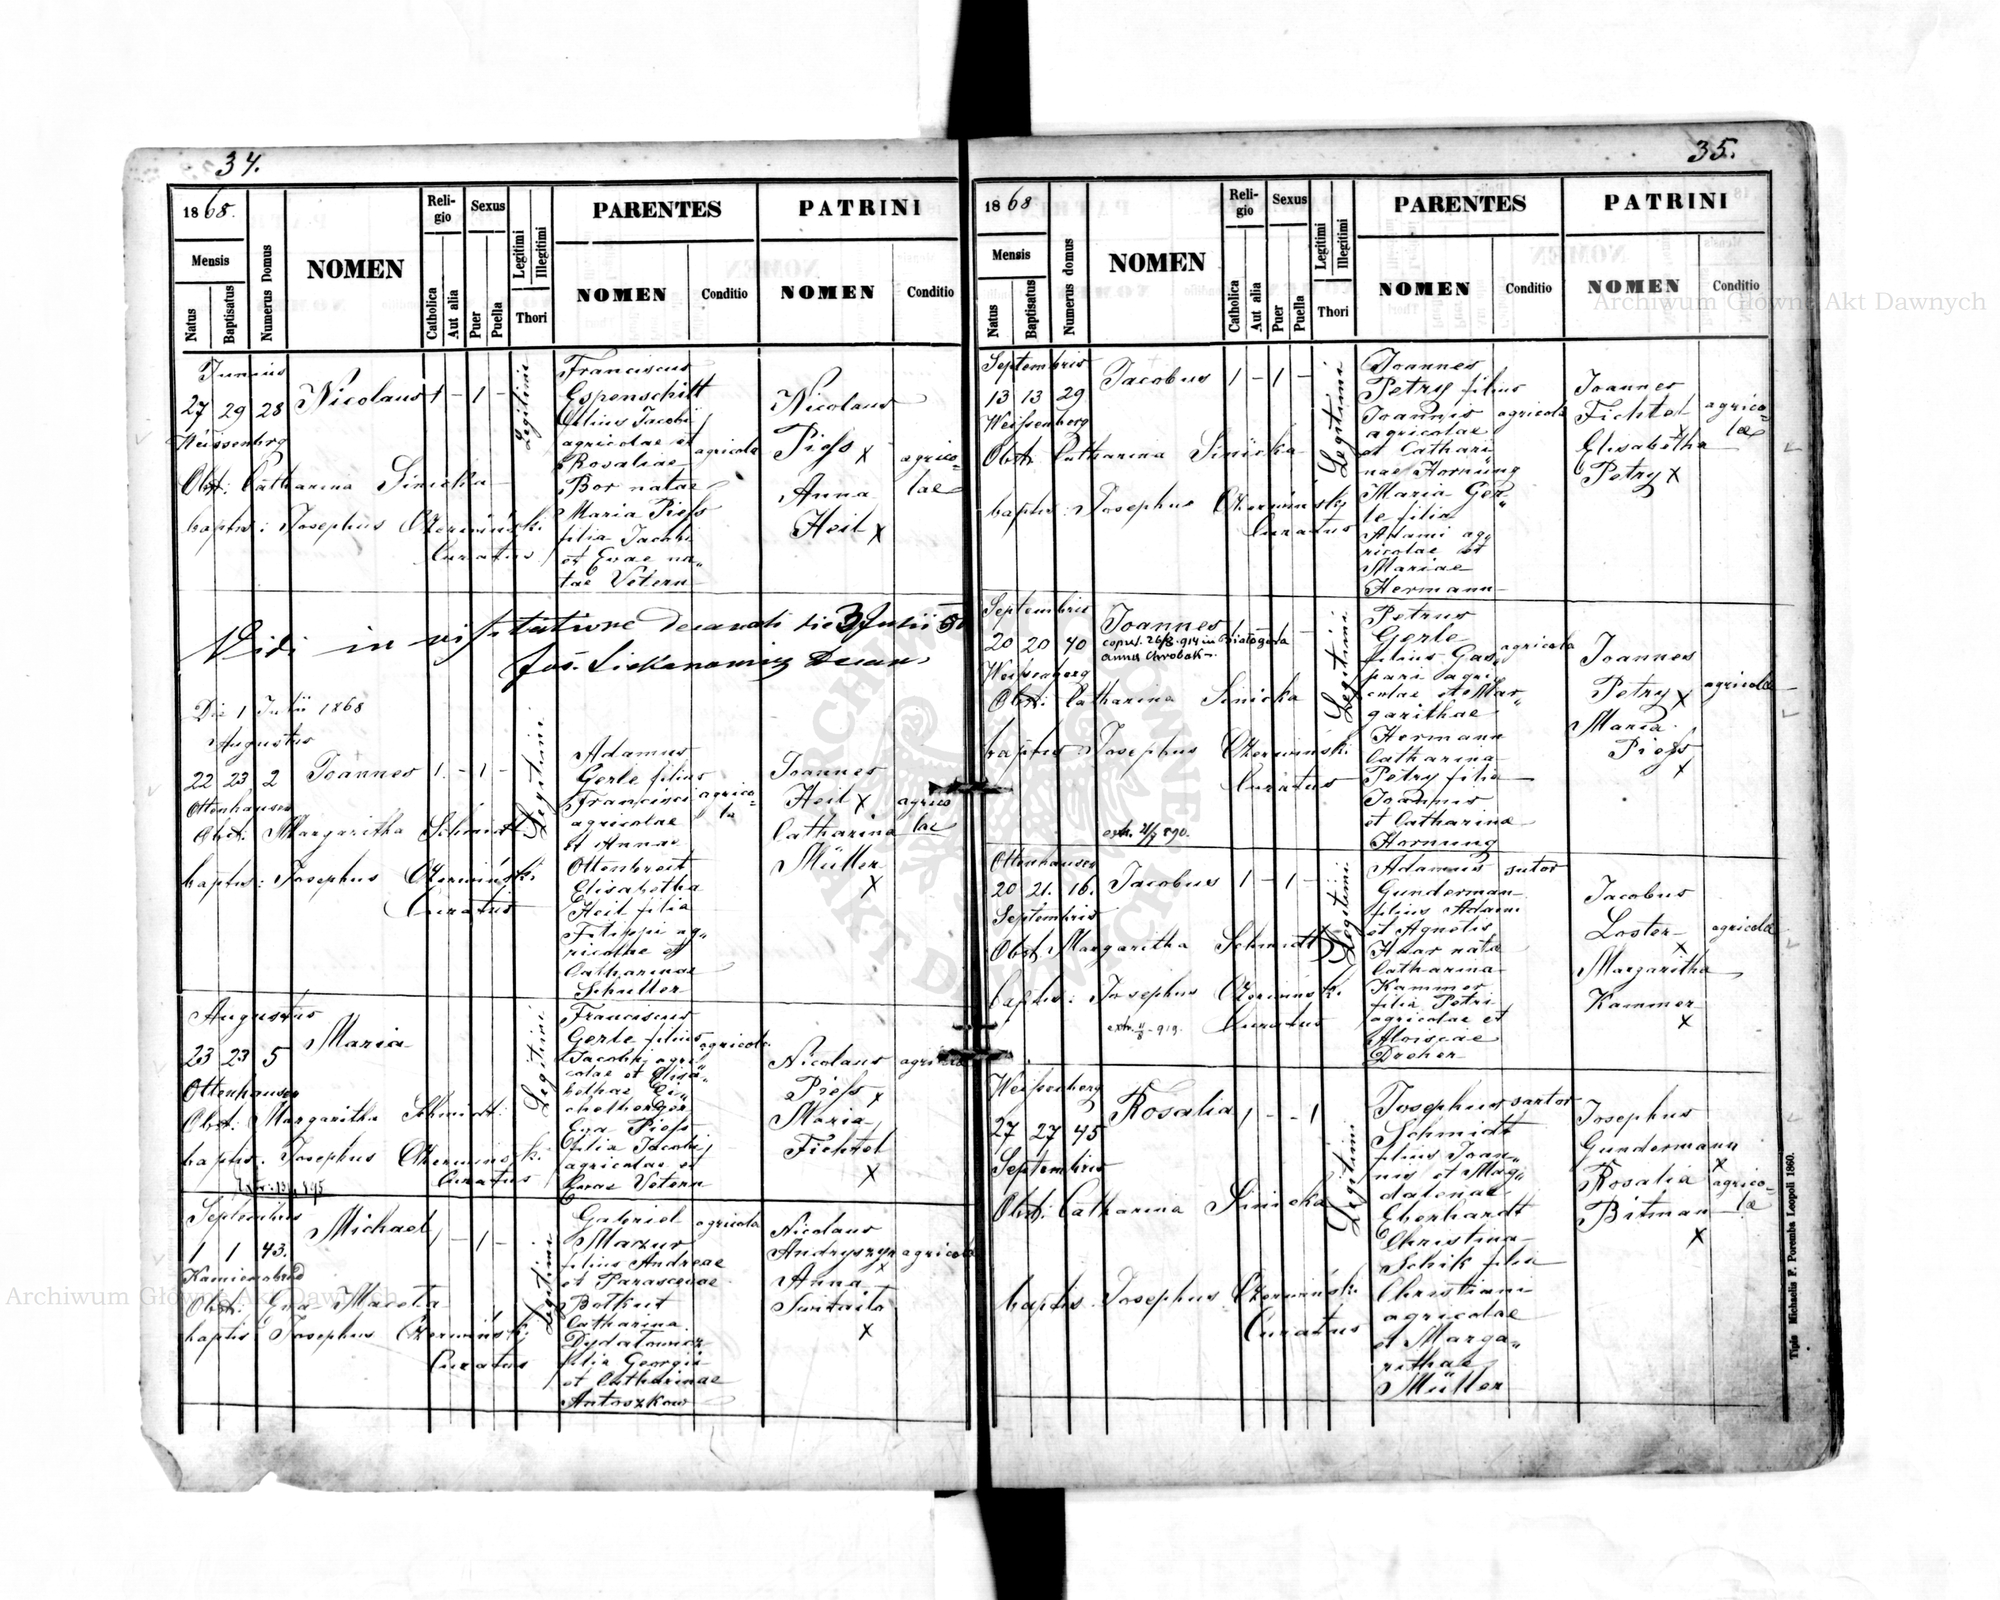 34.
1868.
Mensis
Natus
Baptisatus
Numerus Domus
NOMEN
Religio
Catholica
Aut alia
Sexus
Puer
Puella
Legitimi
Illegitimi
Thori
PARENTES
NOMEN
Conditio
PATRINI
NOMEN
Conditio
Junius
27 29 28 Nicolaus 1 - 1 -
Weissenberg
Obst: Catharina Sinicka
baptis: Josephus Czerwiński
Curatus
Legitimi
Franciscus
Espenschitt
filius Jacobi
agricolae et
Rosaliae
Bor natae
Maria Piess
filia Jacobi
et Evae na„
tae Vetern
agricola
Nicolaus
Piess x
Anna
Heil x
agrico„
lae
Vidi in visitatione Decanali die 3 Julii
Jos. Decan
Die 1 Julii 1868
Augustus
22 23 2 Joannes 1. - 1 -
Ottenhausen
Obst: Margaritha Schmidt
baptis: Josephus Czerwiński
Curatus
Legitimi
Adamus
Gerle filius
Francisci
agricolae
et Annae
Ottenbreit
Elisabetha
Heil filia
Filippi ag„
ricolae et
Catharinae
Schutter
agrico„
la
Joannes
Heil x
Catharina
Müller
x
agrico
lae
Augustus
23 23 5 Maria
Ottenhausen
Obst: Margaritha Schmidt:
baptis: Josephus Czerwiński
Curatus
Legitimi
Franciscus
Gerle filius
Jacobi agri„
colae et Elisa„
bethae Ei„
chelberger
Eva Piess
filia Jacobi
agricolae et
Evae Vetern
agricola
Nicolaus
Piess x
Maria
Fichtel
x
agricolae
Septembris
1 1 43. Michael 1 - 1 -
Kamienobród
Obst: Eva Maceta
baptis: Josephus Czerwiński
Curatus
Legitimi
Gabriel
Mazur
filius Andreae
et Parascevae
Botkut
Catharina
Dydatowicz
filia Georgii
et Catharinae
Antoszkow
agricola
Nicolaus
Andryszyn
x
Anna
x
agricolae
35.
1868
Mensis
Natus
Baptisatus
Numerus domus
NOMEN
Religio
Catholica
Aut alia
Sexus
Puer
Puella
Legitimi
Illegitimi
Thori
PARENTES
NOMEN
Conditio
PATRINI
NOMEN
Conditio
Septembris
13 13 29 Jacobus 1 - 1 -
Weissenberg
Obst: Catharina Sinicka
baptis: Josephus Czerwiński
Curatus
Legitimi
Joannes
Petry filius
Joannis
agricolae
et Cathari
nae Hornung
Maria Ger„
le filia
Adami ag„
ricolae et
Mariae
Hermann
agricola
Joannes
Fichtel
x
Elisabetha
Petry x
agrico„
lae
Septembris
20 20 40 Joannes
copul. 26/8. 914 in Białogóra
anna Chrobak
Weissenberg
Obst: Catharina Sinicka
baptis: Josephus Czerwiński
Curatus
extr. 21/7 890.
Legitimi
Petrus
Gerle
filius Gas„
pari agri„
colae et Mar„
garithae
Hermann
Catharina
Petry filia
Joannis
et Catharina
Hornung
agricola
Joannes
Petry x
Maria
Piess
x
agricolae
Ottenhausen
20 21. 16. Jacobus 1 - 1 -
Septembris
Obst: Margaritha Schmidt
baptis: Josephus Czerwiński.
Curatus
Legitimi
Adamus
Gunderman
filius Adami
et Agnetis
Haar nata
Catharina
Kammer
filia Petri
agricolae et
Aloisiae
Dreher
sutor
Jacobus
Loster
x
Margaritha
Kammer
x
agricolae
Weissenberg
Rosalia 1 - - 1
27 27 45
Septembris
Obst: Catharina Sinicka
baptis Josephus Czerwiński
Curatus
Legitimi
Josephus
Schmidt
filius Joan„
nis et Mag„
dalenae
Eberhardt
Christina
Schik filia
Christiani
agricolae
et Marga„
rithae
Müller
sartor
Josephus
Gundermann
x
Rosalia
Bitman
x
agrico„
lae
Tipis Michaelis F. Poremba Leopoli 1860.
Archiwum Główne Akt Dawnych
Archiwum Główne Akt Dawnych
ARCHIWUM GŁÓWNE AKT DAWNYCH